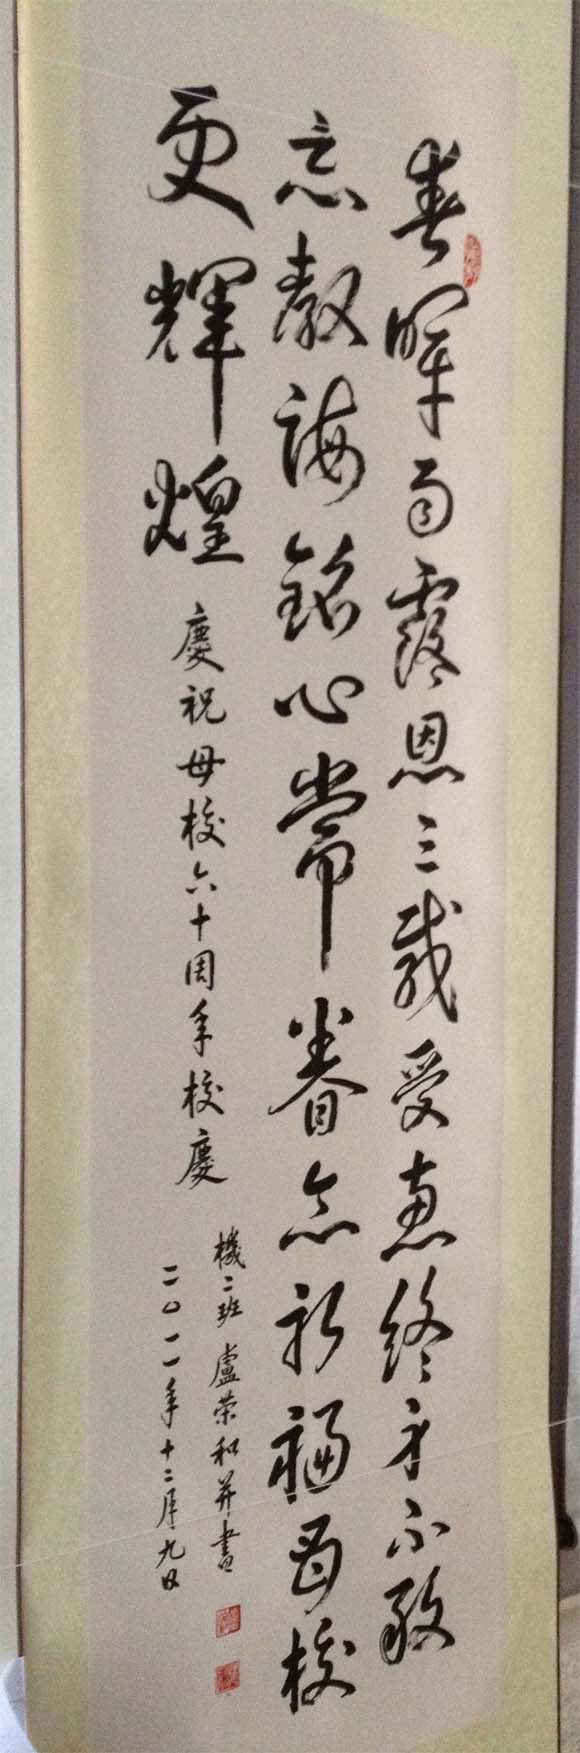 春暉雨露恩三載受惠終身不敢
忘教誨銘心常眷念祈福母校
更輝煌
慶祝母校六十周年校慶
機二班 盧荣和并書
二〇一一年十二月九日